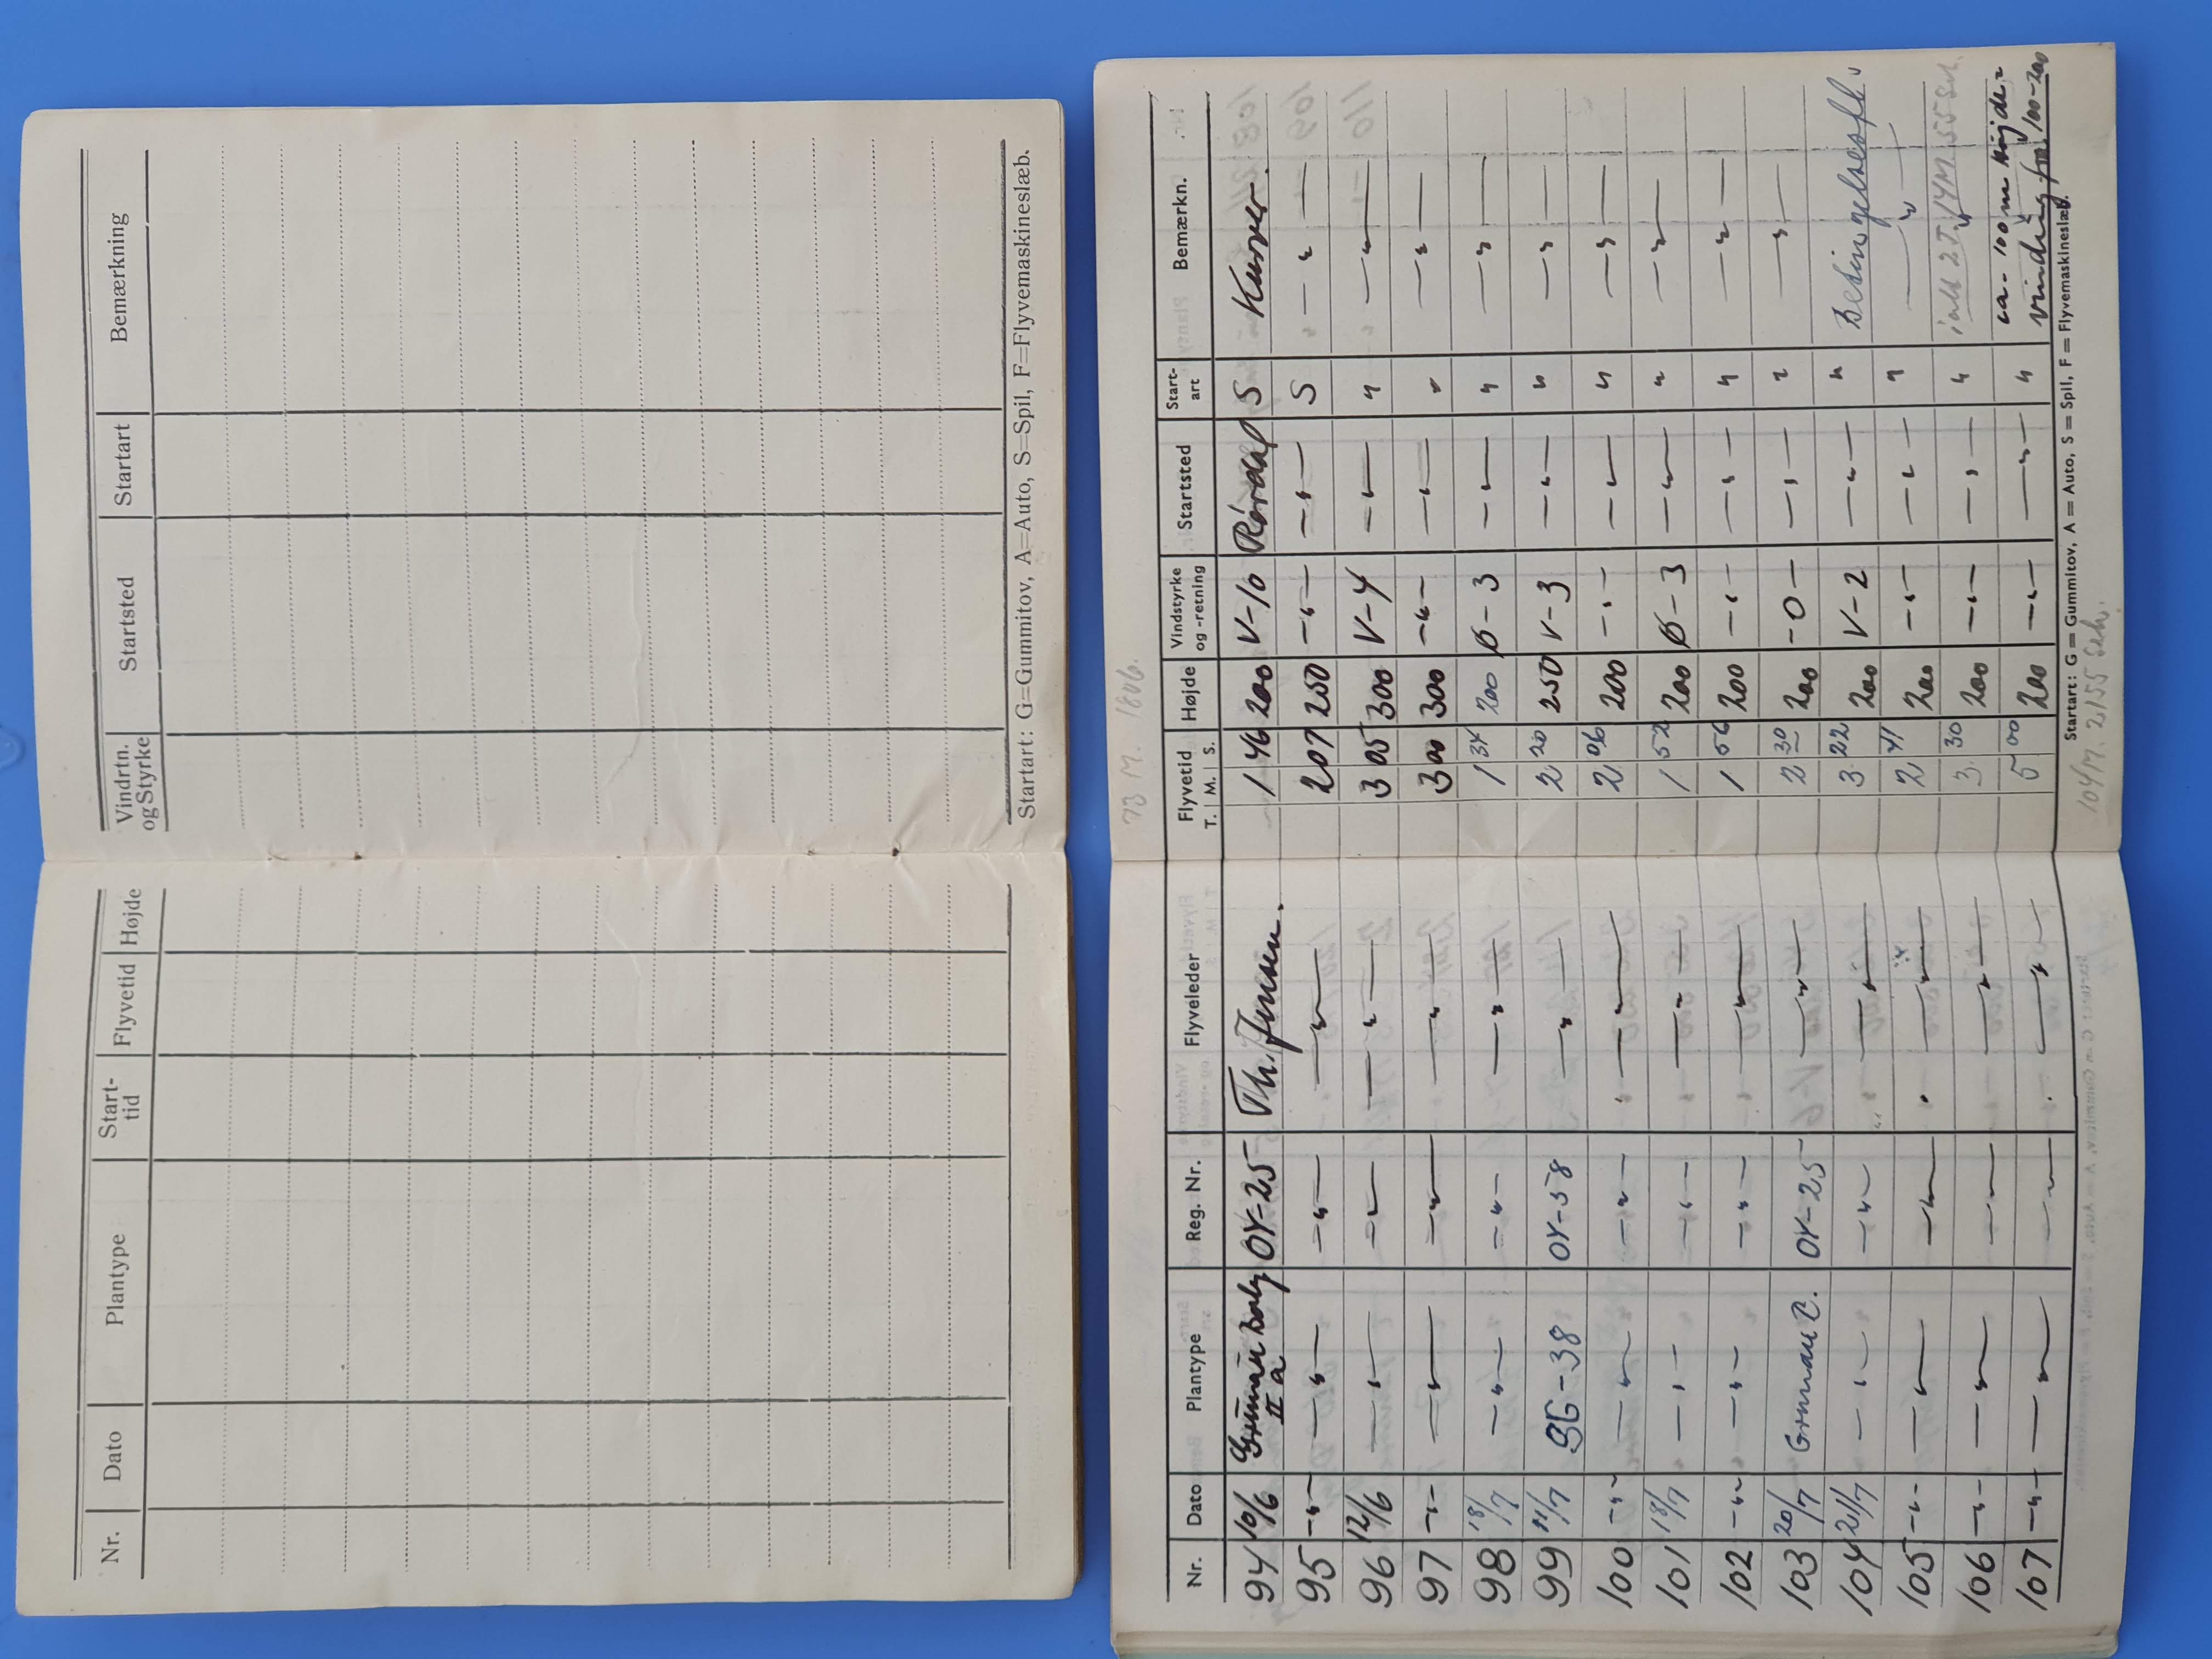 Nr. Dato Plantype Start-tid Flyvetid Højde Vindrtn. og Styrke Startsted Startart Bemærkning
Startart: G=Gummitov, A=Auto, S=Spil, F=Flyvemaskineslæb.
73 M. 1806.
Nr. Dato Plantype Reg. Nr. Flyveleder Flyvetid T. M. S. Højde Vindstyrke og -retning Startsted Start-art Bemærkn.
94 10/6 Grunau Baby II a OY-25 Th. Jensen. 1 46 200 V-10 Rørdal S Kurver.
95 -"- -"- -"- -"- 2 07 250 -"- -"- S -"-
96 12/6 -"- -"- -"- 3 05 300 V-4 -"- " -"-
97 -"- -"- -"- -"- 3 00 300 -"- -"- " -"-
98 18/7 -"- -"- -"- 1 34 200 Ø-3 -"- " -"-
99 11/7 SG-38 OY-58 -"- 2 20 250 V-3 -"- " -"-
100 -"- -"- -"- -"- 2 06 200 -"- -"- " -"-
101 18/7 -"- -"- -"- 1 52 200 Ø-3 -"- " -"-
102 -"- -"- -"- -"- 1 56 200 -"- -"- " -"-
103 20/7 Grunau B. OY-25 -"- 2 30 200 -0- -"- " -"-
104 21/7 -"- -"- -"- 3 22 200 V-2 -"- "
105 -"- -"- -"- -"- 2 41 200 -"- -"- " -"-
106 -"- -"- -"- -"- 3 30 200 -"- -"- " -"-
107 -"- -"- -"- -"- 5 00 200 -"- -"- " ca. 100 m højde-vinding fra 100-200
Startart: G = Gummitov, A = Auto, S = Spil, F = Flyvemaskineslæb.
104 M. 2155 Sek.